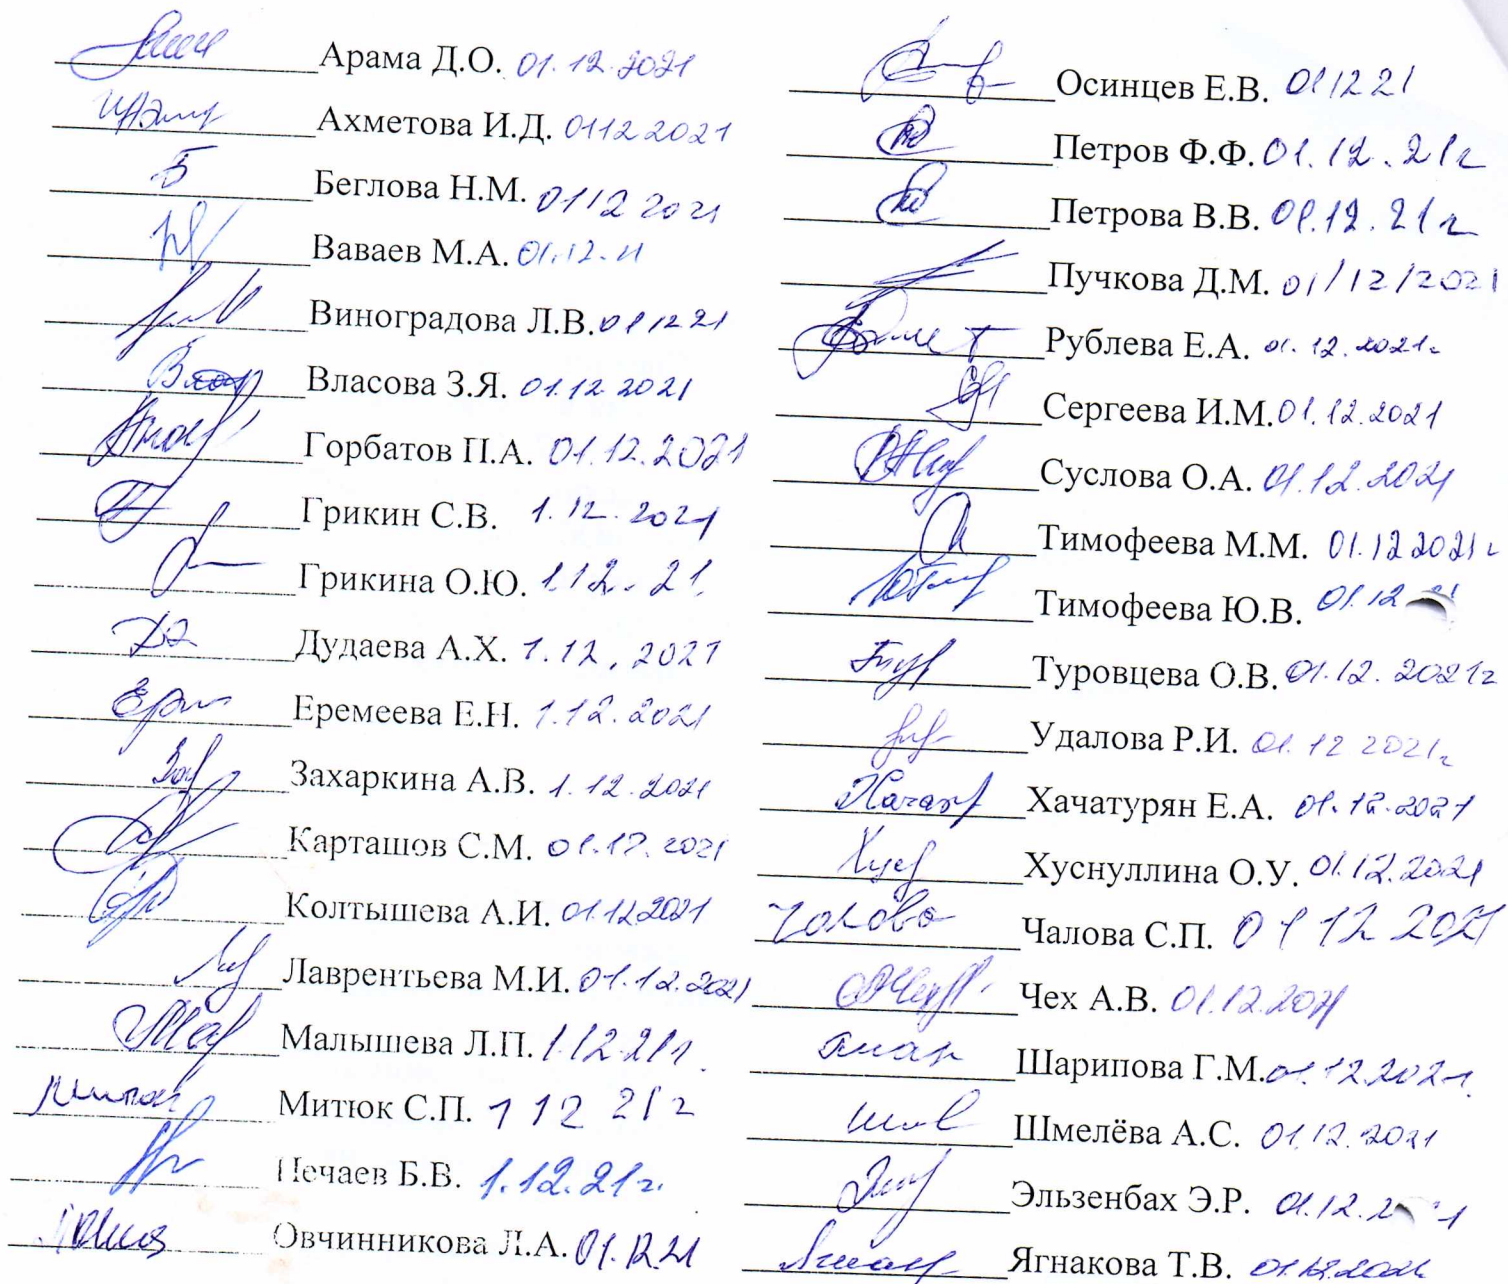 Арама Д.О. 01.12.2021
Ахметова И.Д. 01122021
Беглова Н.М. 01122021
Ваваев М.А. 01.12.21
Виноградова Л.В. 011221
Власова З.Я. 01.12.2021
Горбатов П.А. 01.12.2021
Грикин С.В. 1.12.2021
Грикина О.Ю. 1.12.21.
Дудаева А.Х. 1.12.2021
Еремеева Е.Н. 1.12.2021
Захаркина А.В. 1.12.2021
Карташов С.М. 01.12.2021
Колтышева А.И. 01.12.2021
Лаврентьева М.И. 01.12.2021
Малышева Л.П. 1.12.21г.
Митюк С.П. 1 12 21г
Нечаев Б.В. 1.12.21г.
Овчинникова Л.А. 01.12.21
Осинцев Е.В. 011221
Петров Ф.Ф. 01.12.21г
Петрова В.В. 01.12.21г
Пучкова Д.М. 01/12/2021
Рублева Е.А. 01.12.2021г
Сергеева И.М. 01.12.2021
Суслова О.А. 01.12.2021
Тимофеева М.М. 01.12 2021г
Тимофеева Ю.В. 01.12
Туровцева О.В. 01.12.2021г
Удалова Р.И. 01.12 2021г
Хачатурян Е.А. 01.12.2021
Хуснуллина О.У. 01.12.2021
Чалова Чалова С.П. 01 12 2021
Чех А.В. 01.12.2021
Шарипова Г.М. 01.12.2021
Шмелёва А.С. 01.12.2021
Эльзенбах Э.Р. 01.12.
Ягнакова Т.В. 01.12.2021